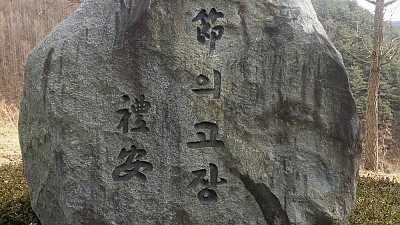 節의고장
禮安